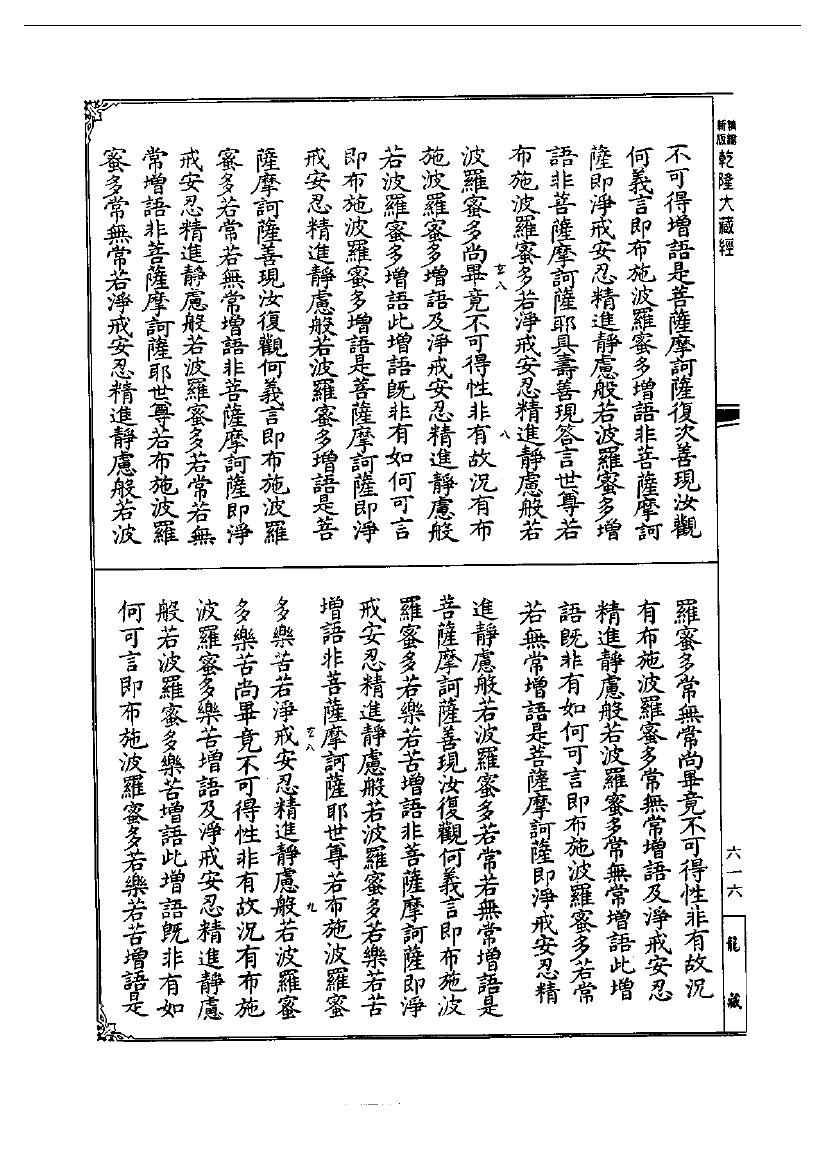 新版
乾隆大藏經
不可得增語是菩薩摩訶薩復次善現汝觀
何義言即布施波羅蜜多增語非菩薩摩訶
薩即淨戒安忍精進靜慮般若波羅蜜多增
語非菩薩摩訶薩耶具壽善現答言世尊若
布施波羅蜜多若淨戒安忍精進靜慮般若
八
波羅蜜多尚畢竟不可得性非有故況有布
施波羅蜜多增語及淨戒安忍精進靜慮般
若波羅蜜多增語此增語既非有如何可言
即布施波羅蜜多增語是菩薩摩訶薩即淨
戒安忍精進靜慮般若波羅蜜多增語是菩
薩摩訶薩善現汝復觀何義言即布施波羅
蜜多若常若無常增語非菩薩摩訶薩即淨
戒安忍精進靜慮般若波羅蜜多若常若無
常增語非菩薩摩訶薩耶世尊若布施波羅
蜜多常無常若淨戒安忍精進靜慮般若波
羅蜜多常無常尚畢竟不可得性非有故況
有布施波羅蜜多常無常增語及淨戒安忍
精進靜慮般若波羅蜜多常無常增語此增
語既非有如何可言即布施波羅蜜多若常
若無常增語是菩薩摩訶薩即淨戒安忍精
進靜慮般若波羅蜜多若常若無常增語是
菩薩摩訶薩善現汝復觀何義言即布施波
羅蜜多若樂若苦增語非菩薩摩訶薩即淨
戒安忍精進靜慮般若波羅蜜多若樂若苦
增語非菩薩摩訶薩耶世尊若布施波羅蜜
九
多樂苦若淨戒安忍精進靜慮般若波羅蜜
多樂苦尚畢竟不可得性非有故況有布施
波羅蜜多樂苦增語及淨戒安忍精進靜慮
般若波羅蜜多樂苦增語此增語既非有如
何可言即布施波羅蜜多若樂若苦增語是
六一六
龍藏